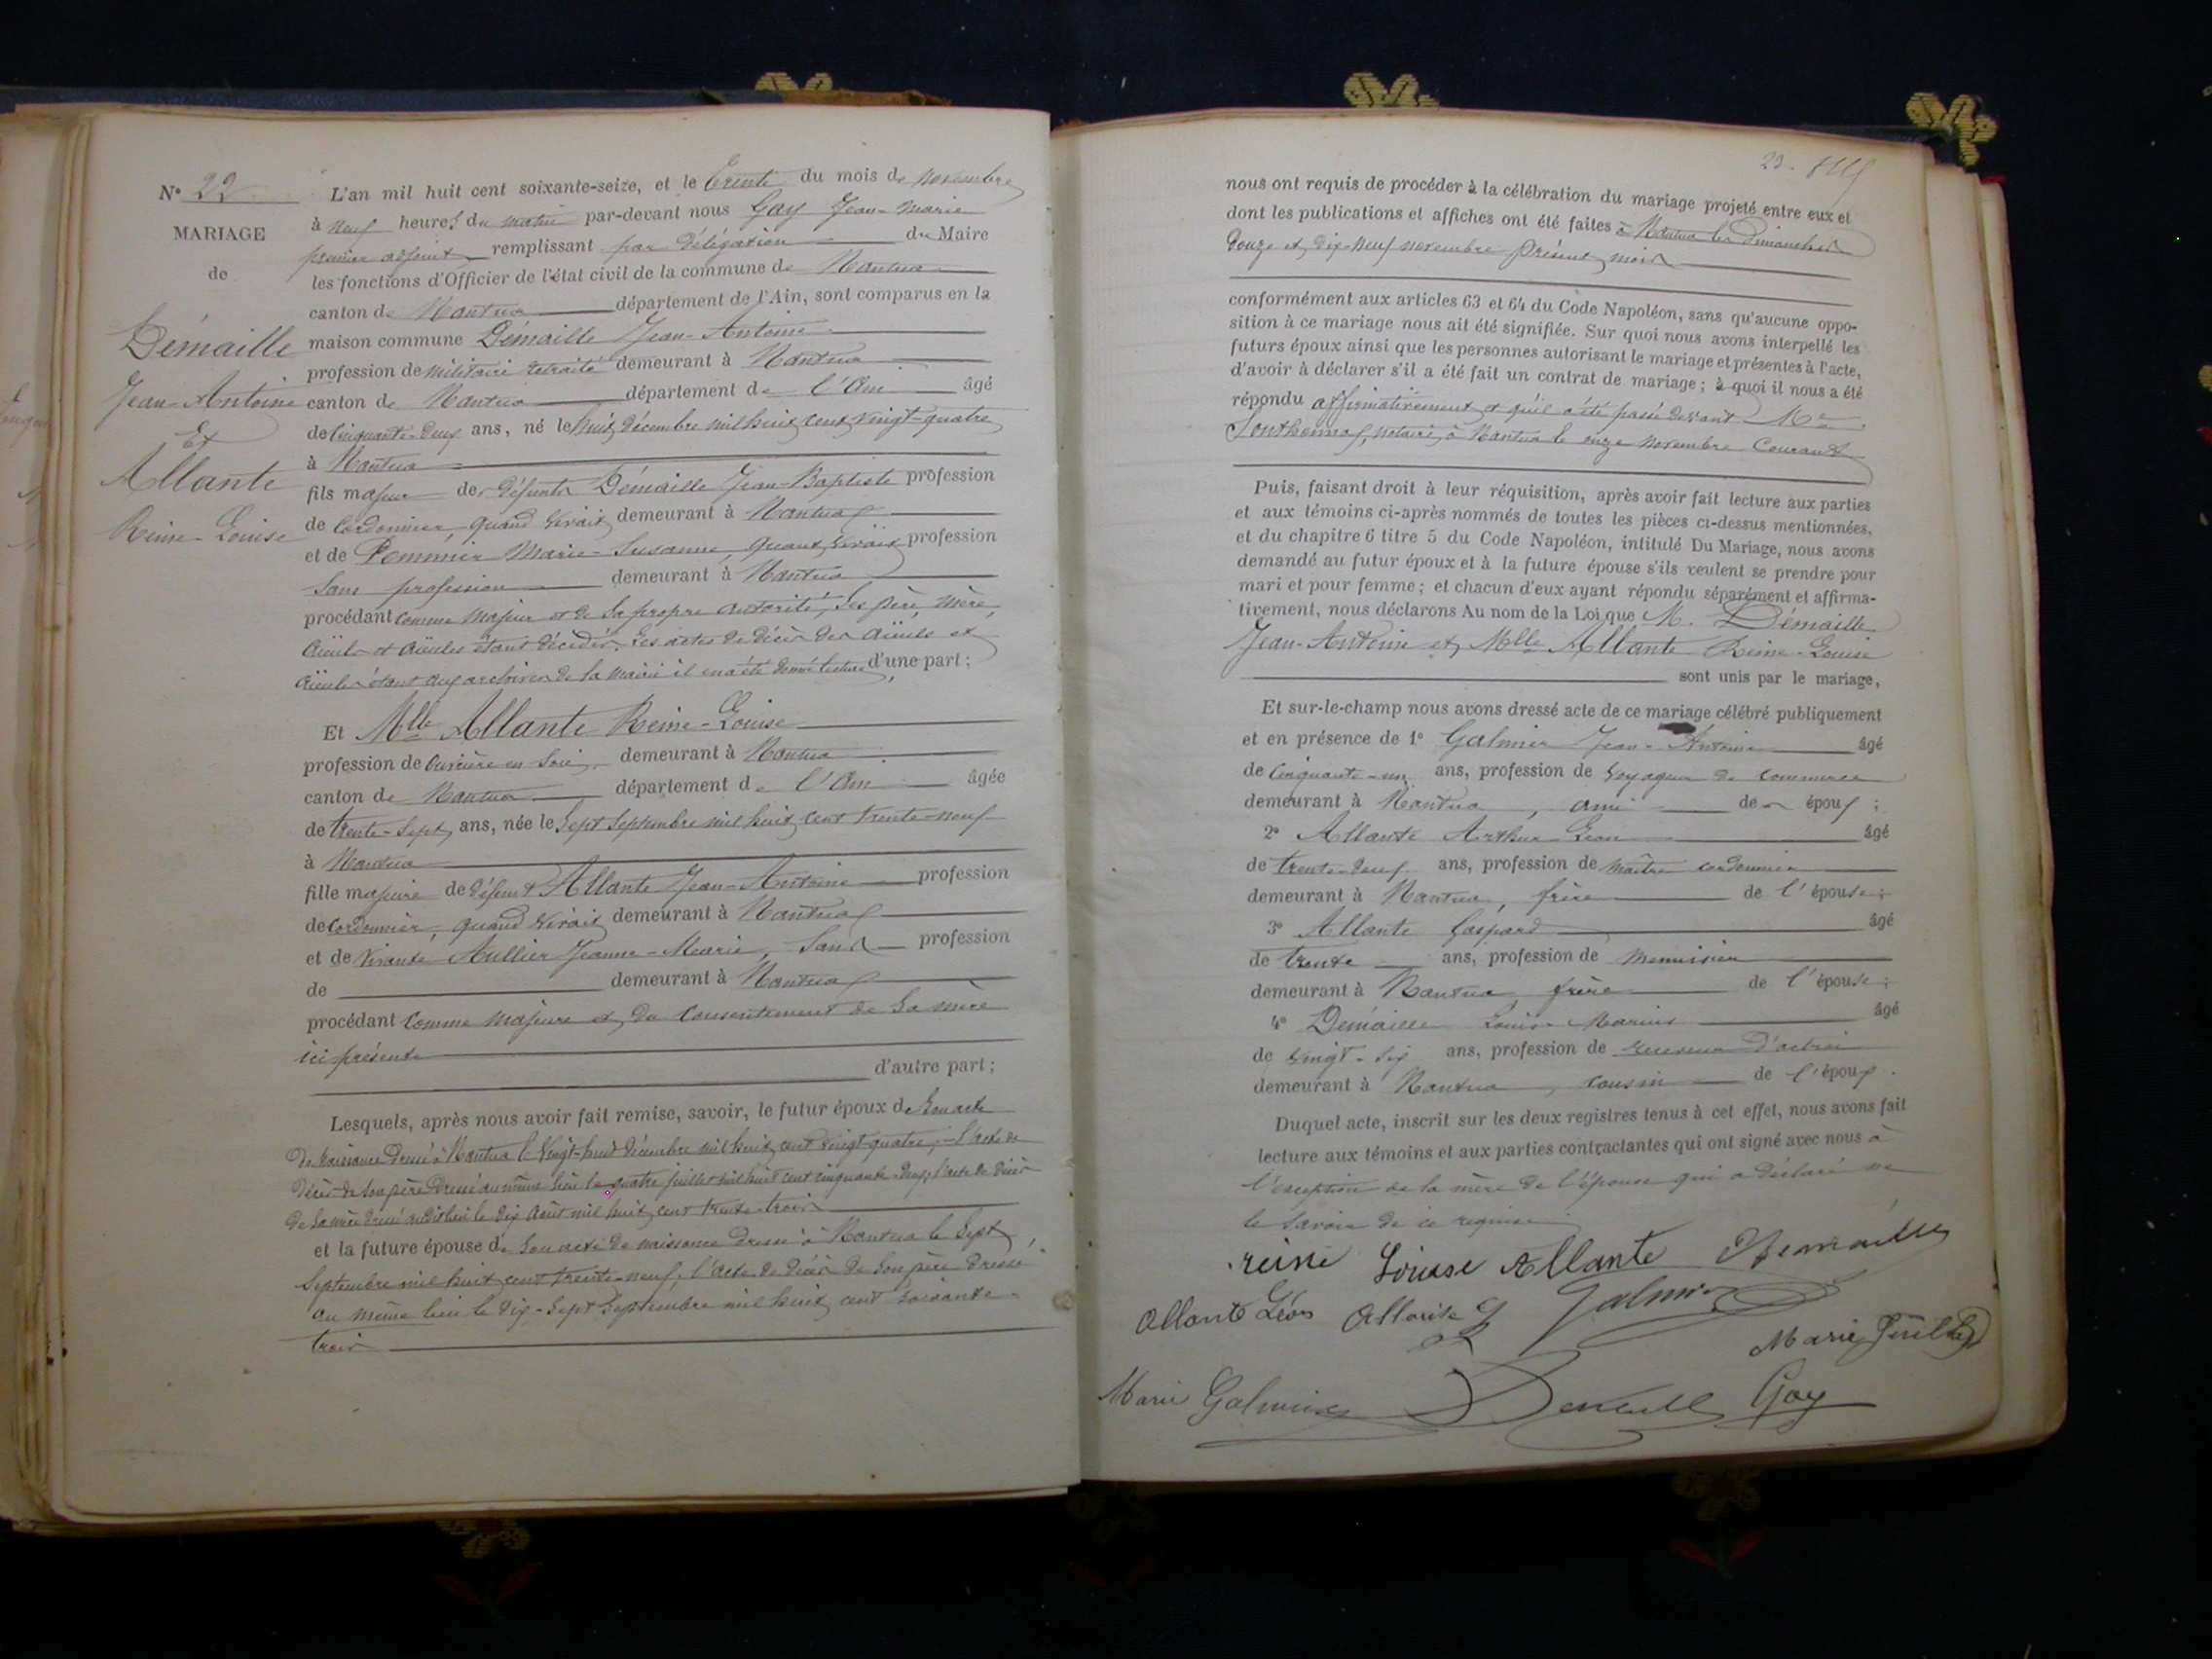 N° 22
MARIAGE
de
Démaille
Jean-Antoine
Et
Allante
Reine-Louise
L'an mil huit cent soixante-seize, et le trente du mois de novembre
à neuf heures du matin par-devant nous Gay Jean-Marie
premier adjoint remplissant par délégation du Maire
les fonctions d'Officier de l'état civil de la commune de Nantua
canton de Nantua département de l'Ain, sont comparus en la
maison commune Démaille Jean-Antoine
profession de militaire retraité demeurant à Nantua
canton de Nantua département de l'Ain âgé
de cinquante-deux ans, né le huit décembre mil huit cent vingt-quatre
à Nantua
fils majeur de défunts Démaille Jean-Baptiste profession
de cordonnier, quand vivait demeurant à Nantua
et de Pommier Marie-Susanne, quand vivait profession
sans profession demeurant à Nantua
procédant comme majeur et de sa propre autorité, ses père, mère,
aïeuls et aïeules étant décédés. Les actes de décès des aïeuls et
aïeules étant aux archives de la mairie il en a été donné lecture, d'une part;
Et Mlle Allante Reine-Louise
profession de ouvrière en soie demeurant à Nantua
canton de Nantua département de l'Ain âgée
de trente-sept ans, née le sept septembre mil huit cent trente-neuf
à Nantua
fille majeure de défunt Allante Jean-Antoine profession
de cordonnier, quand vivait demeurant à Nantua
et de vivante Aullier Jeanne-Marie, sans profession
de demeurant à Nantua
procédant comme majeure et du consentement de sa mère
ici présente
d'autre part;
Lesquels, après nous avoir fait remise, savoir, le futur époux de son acte
de naissance dressé à Nantua le vingt-huit décembre mil huit cent vingt-quatre, l'acte de
décès de son père dressé au même lieu le quatre juillet mil huit cent cinquante-deux, l'acte de décès
de sa mère dressé audit lieu le dix août mil huit cent trente-trois
et la future épouse de son acte de naissance dressé à Nantua le sept
septembre mil huit cent trente-neuf, l'acte de décès de son père dressé
au même lieu le dix-sept septembre mil huit cent soixante-
trois
23.
nous ont requis de procéder à la célébration du mariage projeté entre eux et
dont les publications et affiches ont été faites à Nantua les dimanches
douze et dix-neuf novembre présent mois
conformément aux articles 63 et 64 du Code Napoléon, sans qu'aucune oppo-
sition à ce mariage nous ait été signifiée. Sur quoi nous avons interpellé les
futurs époux ainsi que les personnes autorisant le mariage et présentes à l'acte,
d'avoir à déclarer s'il a été fait un contrat de mariage; à quoi il nous a été
répondu affirmativement et qu'il a été passé devant Me
Southonnax, notaire, à Nantua le onze novembre courant
Puis, faisant droit à leur réquisition, après avoir fait lecture aux parties
et aux témoins ci-après nommés de toutes les pièces ci-dessus mentionnées,
et du chapitre 6 titre 5 du Code Napoléon, intitulé Du Mariage, nous avons
demandé au futur époux et à la future épouse s'ils veulent se prendre pour
mari et pour femme; et chacun d'eux ayant répondu séparément et affirma-
tivement, nous déclarons Au nom de la Loi que M. Démaille
Jean-Antoine et Mlle Allante Reine-Louise
sont unis par le mariage,
Et sur-le-champ nous avons dressé acte de ce mariage célébré publiquement
et en présence de 1° Galmier Jean-Antoine âgé
de cinquante-un ans, profession de voyageur de commerce
demeurant à Nantua, ami de époux;
2° Allante Arthur-Léon âgé
de trente-deux ans, profession de maître cordonnier
demeurant à Nantua, frère de l'épouse;
3° Allante Gaspard âgé
de trente ans, profession de menuisier
demeurant à Nantua, frère de l'épouse;
4° Démaille Louis-Marius âgé
de vingt-six ans, profession de receveur d'octroi
demeurant à Nantua, cousin de l'époux.
Duquel acte, inscrit sur les deux registres tenus à cet effet, nous avons fait
lecture aux témoins et aux parties contractantes qui ont signé avec nous à
l'exception de la mère de l'épouse qui a déclaré ne
le savoir de ce requise
reine Louise Allante Demaille
Allante Léon Allante G Galmier
Marie
Marie Galmier Demaille Gay